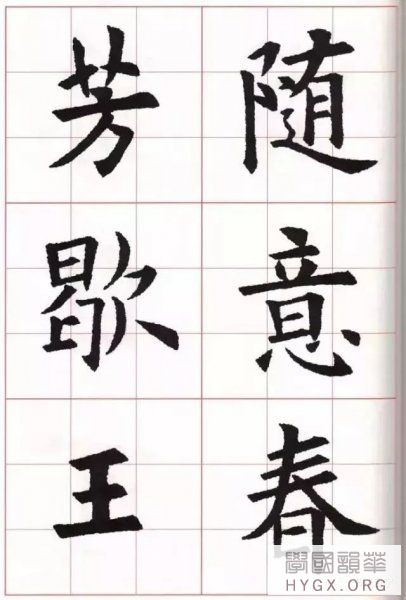 随意春
芳歇王
學國韻華
HYGX.ORG